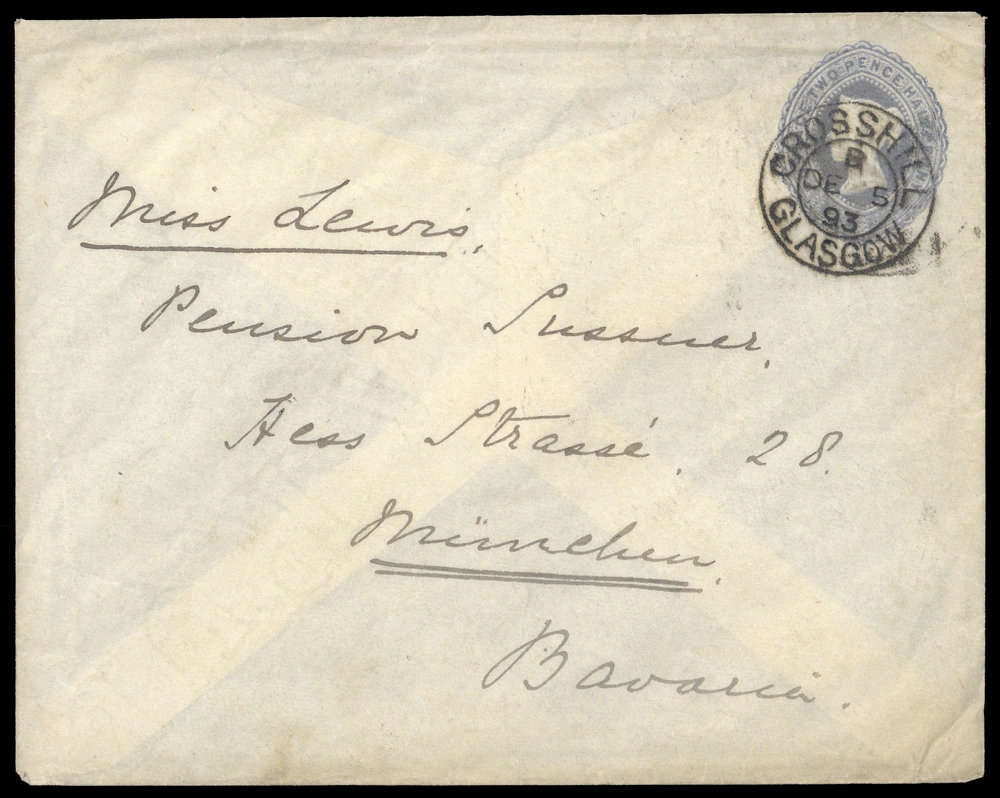 TWO PENCE HALF
CROSSHILL
B
DE 5
93
GLASGOW
Miss Lewis,
Pension Sussner,
Hess Strassé, 28.
München,
Bavaria.